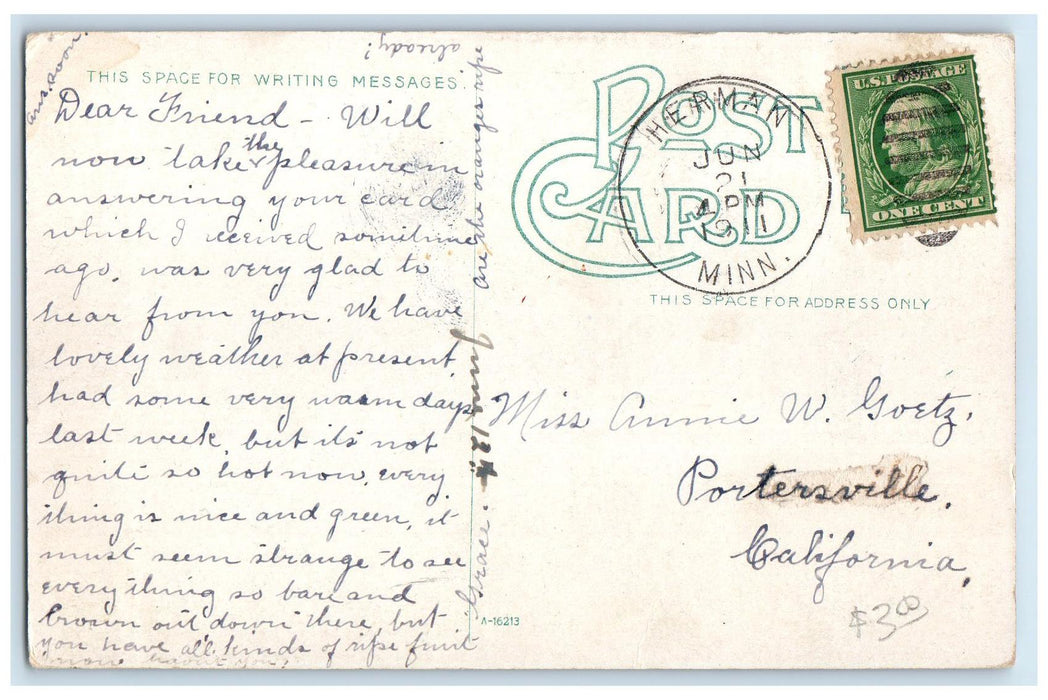 THIS SPACE FOR WRITING MESSAGES
Dear Friend - Will
now take the pleasure in
answering your card
which I received sometime
ago, was very glad to
hear from you. We have
lovely weather at present,
had some very warm days
last week, but its not
quite so hot now, every
thing is nice and green, it
must seem strange to see
everything so bare and
brown out down there, but
you have all kinds of ripe fruit
now havent you,
are the oranges ripe
already?
ans. soon.
Grace.
POST
CARD
HERMAN
JUN
21
4 PM
1911
MINN.
U.S. POSTAGE
ONE CENT
THIS SPACE FOR ADDRESS ONLY
Miss Annie W. Goetz,
Portersville,
California,
A-16213
$3.00